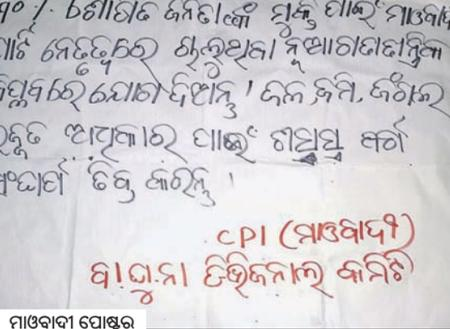 ୨୦/ ଶୋଷିତ ଜନତାଙ୍କ ମୁକ୍ତି ପାଇଁ ମାଓବାଦୀ
ପାର୍ଟି ନେତୃତ୍ୱରେ ଚାଲୁଥିବା ନୂଆଗଣତାନ୍ତ୍ରିକ
ବିପ୍ଳବରେ ଯୋଗ ଦିଅନ୍ତୁ । ଜଳ, ଜମି, ଜଙ୍ଗଲ
ଇଜ୍ଜତ ଅଧିକାର ପାଇଁ ସଶସ୍ତ୍ର ବର୍ଗ
ସଂଘର୍ଷ ତିବ୍ର କରିନ୍ତୁ ।
CPI (ମାଓବାଦୀ)
ବା.ଘୁ.ନା ଡିଭିଜନାଲ କମିଟି
ମାଓବାଦୀ ପୋଷ୍ଟର